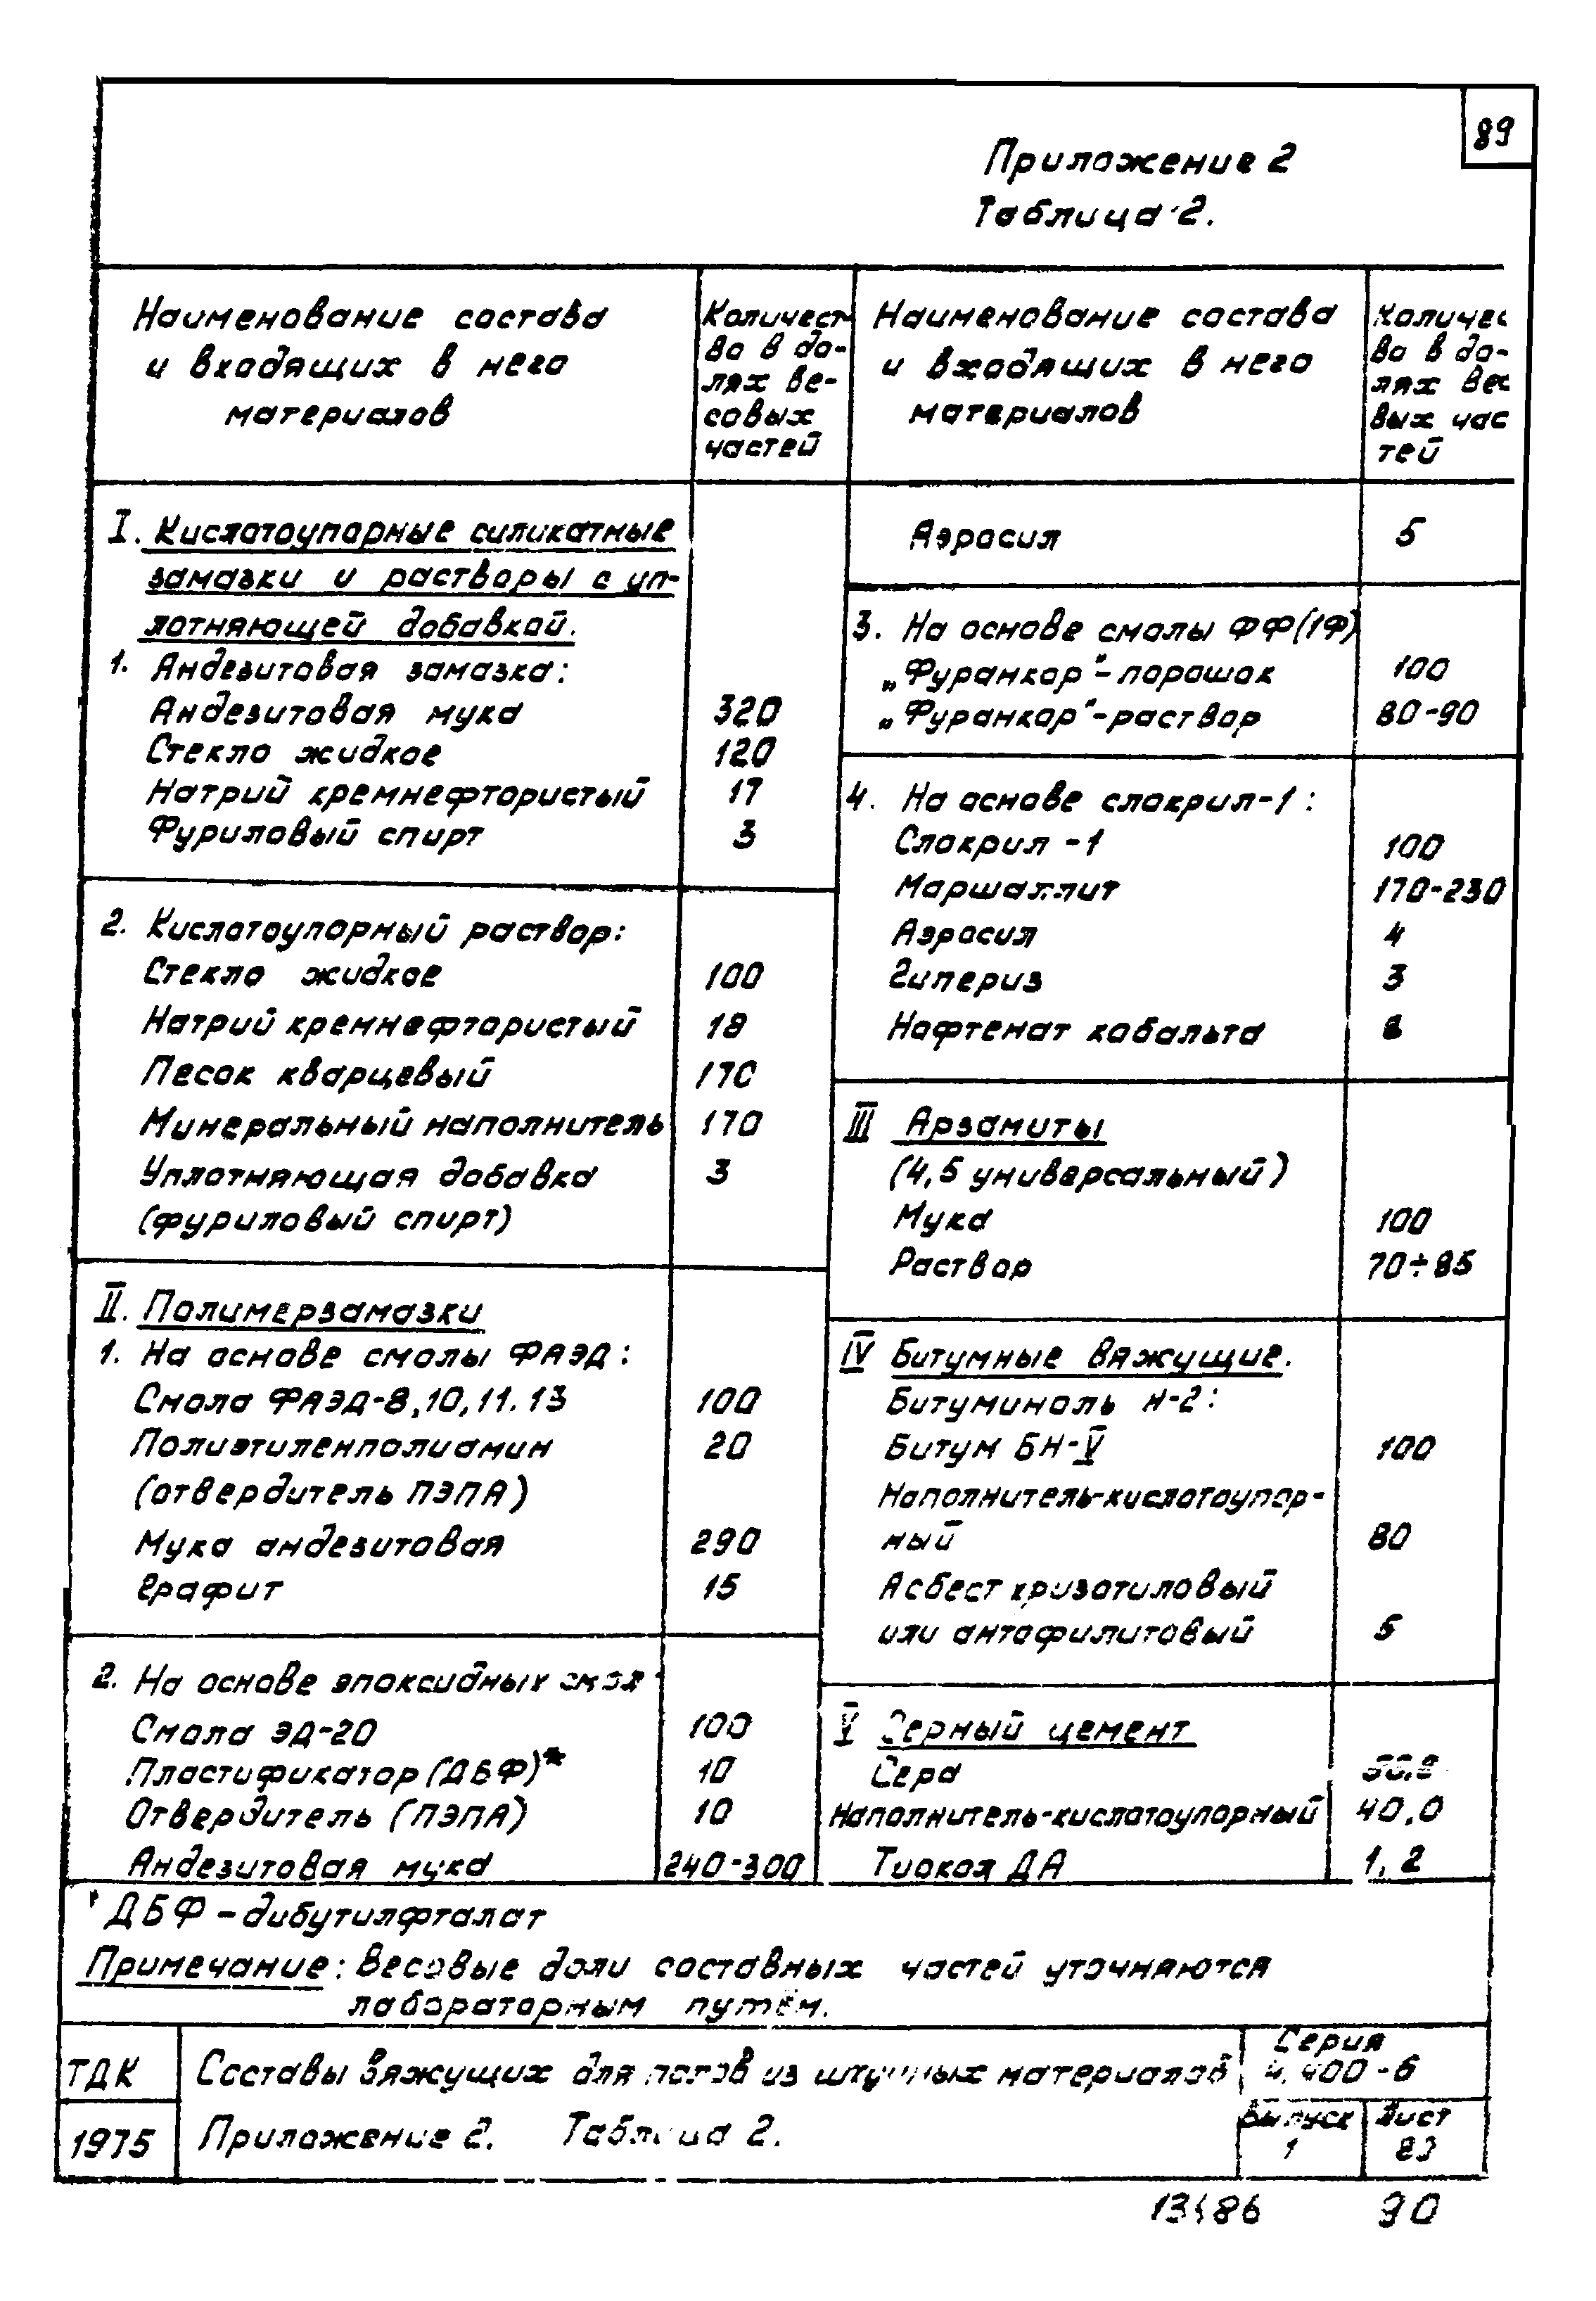 89
Приложение 2
Таблица 2.
Наименование состава
и входящих в него
материалов
Количест-
во в до-
лях ве-
совых
частей
I. Кислотоупорные силикатные
замазки и растворы с уп-
лотняющей добавкой.
1. Андезитовая замазка:
Андезитовая мука 320
Стекло жидкое 120
Натрий кремнефтористый 17
Фуриловый спирт 3
2. Кислотоупорный раствор:
Стекло жидкое 100
Натрий кремнефтористый 18
Песок кварцевый 170
Минеральный наполнитель 170
Уплотняющая добавка 3
(фуриловый спирт)
II. Полимерзамазки
1. На основе смолы ФАЭД:
Смола ФАЭД-8,10,11.13 100
Полиэтиленполиамин 20
(отвердитель ПЭПА)
Мука андезитовая 290
Графит 15
2. На основе эпоксидных смол
Смола ЭД-20 100
Пластификатор (ДБФ)* 10
Отвердитель (ПЭПА) 10
Андезитовая мука 240-300
Наименование состава
и входящих в него
материалов
Количес
во в до-
лях вес
вых час
тей
Аэросил 5
3. На основе смолы ФФ(1Ф)
„Фуранкор"-порошок 100
„Фуранкор"-раствор 80-90
4. На основе слокрил-1:
Слокрил-1 100
Маршаллит 170-230
Аэросил 4
Гипериз 3
Нафтенат кобальта
III Арзамиты
(4,5 универсальный)
Мука 100
Раствор 70÷85
IV Битумные вяжущие.
Битуминоль Н-2:
Битум БН-V 100
Наполнитель-кислотоупор-
ный 80
Асбест хризотиловый
или антофилитовый 5
V Серный цемент
Сера
Наполнитель-кислотоупорный 40,0
Тиокол ДА 1,2
* ДБФ - дибутилфталат
Примечание: Весовые доли составных частей уточняются
лабораторным путём.
ТДК
1975
Составы вяжущих для полов из штучных материалов
Приложение 2. Таблица 2.
Серия
4.400-6
Выпуск
1
Лист
83
90